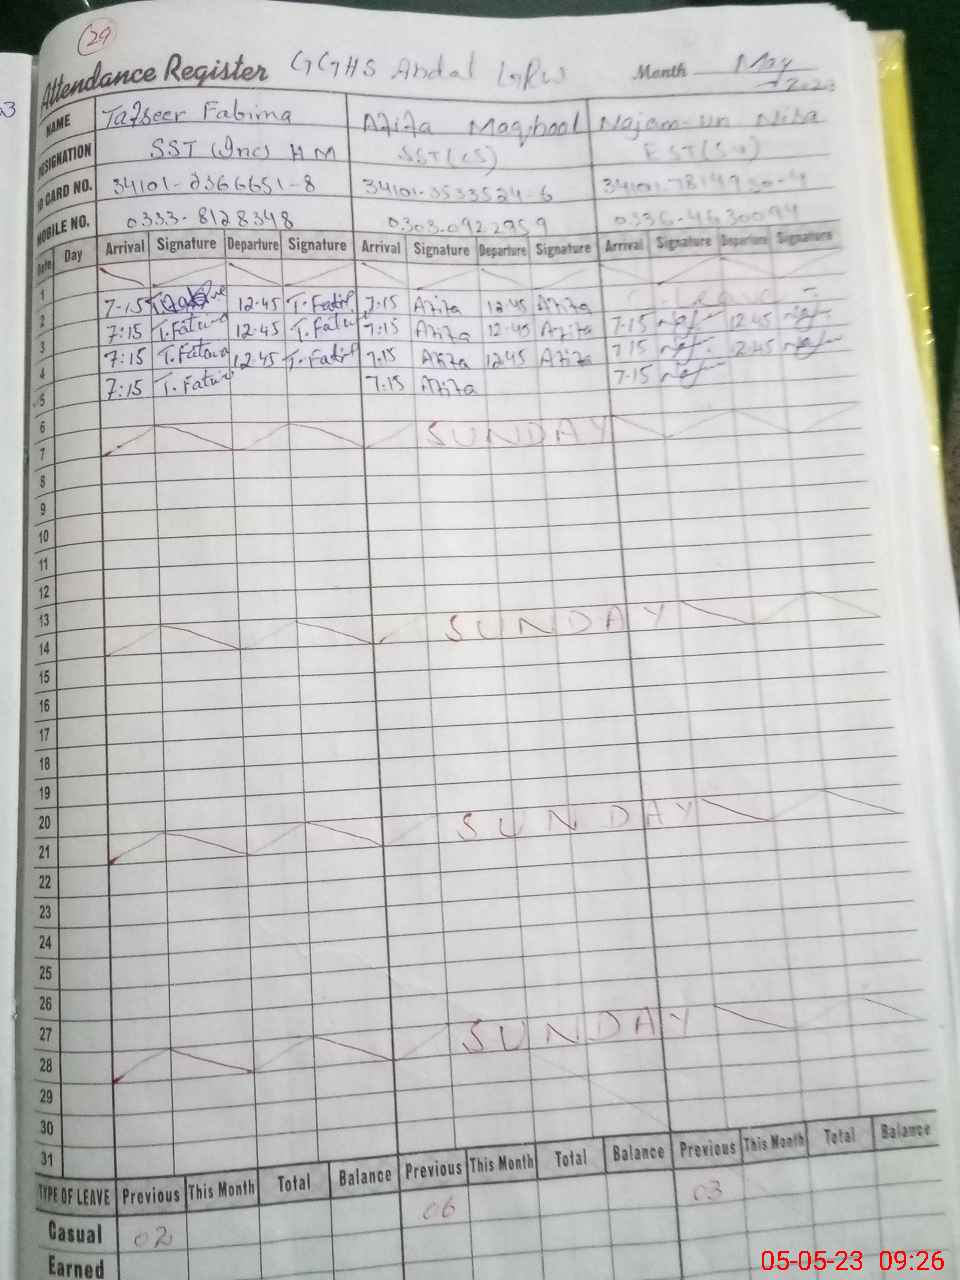 29
Attendance Register GGHS Abdal GRW Month May 2023
NAME Tafseer Fatima Aziza Maqbool Najam-un Nisa
DESIGNATION SST (Inc) HM SST (CS)
ID CARD NO. 34101-2366651-8 34101-3533524-6
MOBILE NO. 0333-8128348 0303-0922959 0336-4630094
Date Day Arrival Signature Departure Signature Arrival Signature Departure Signature Arrival Signature Departure Signature
1
2 7-15 12.45 T.Fatima 7:15 Aziza 12.45 Aziza
3 7:15 T.Fatima 12.45 T.Fatima 7:15 Aziza 12.45 Aziza 7-15 12.45
4 7:15 T.Fatima 12.45 T.Fatima 7.15 Aziza 12.45 Aziza 7.15 12.45
5 7:15 T.Fatima 7.15 Aziza 7-15
6
7 SUNDAY
8
9
10
11
12
13
14 SUNDAY
15
16
17
18
19
20
21 SUNDAY
22
23
24
25
26
27
28 SUNDAY
29
30
31
TYPE OF LEAVE Previous This Month Total Balance Previous This Month Total Balance Previous This Month Total Balance
Casual 02 06 03
Earned
05-05-23 09:26